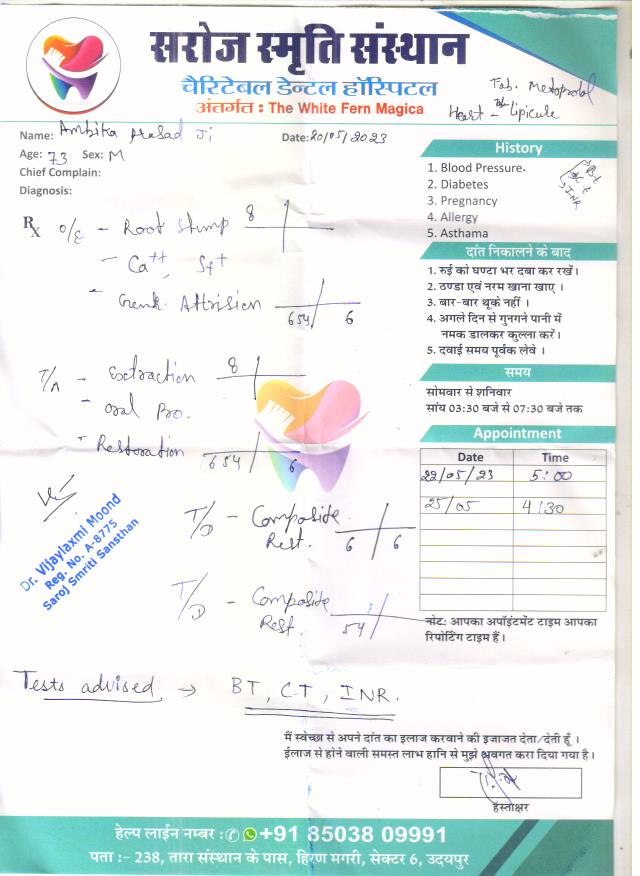 सरोज स्मृति संस्थान
चैरिटेबल डेन्टल हॉस्पिटल
अंतर्गत : The White Fern Magica
Tab. Metoprolol
Heart -
Name: Ambika Prasad Ji
Date: 20/05/2023
Age: 73 Sex: M
Chief Complaint:
Diagnosis:
History
1. Blood Pressure.
2. Diabetes
3. Pregnancy
4. Allergy
5. Asthama
BT
CT
INR
Rx O/E - Root Stump 8
- Ca++, St+
- Attrision 654 6
दांत निकालने के बाद
1. रुई को घण्टा भर दबा कर रखें।
2. ठण्डा एवं नरम खाना खाए ।
3. बार-बार थूके नहीं ।
4. अगले दिन से गुनगने पानी में
नमक डालकर कुल्ला करें।
5. दवाई समय पूर्वक लेवे ।
समय
सोमवार से शनिवार
सांय 03:30 बजे से 07:30 बजे तक
- Extraction 8
- Oral Pro.
- Restoration 654 6
Appointment
Date Time
22/05/23 5:00
25/05 4:30
Dr. Vijaylaxmi Moond
Reg. No. A-8775
Saroj Smriti Sansthan
T/D - Composite
Rest. 6 6
T/D - Composite
Rest 54
नोट: आपका अपॉइंटमेंट टाइम आपका
रिपोर्टिंग टाइम हैं।
Tests advised → BT, CT, INR.
मैं स्वेच्छा से अपने दांत का इलाज करवाने की इजाजत देता/देती हूँ ।
ईलाज से होने वाली समस्त लाभ हानि से मुझे अवगत करा दिया गया है।
हस्ताक्षर
हेल्प लाईन नम्बर : +91 85038 09991
पता :- 238, तारा संस्थान के पास, हिरण मगरी, सेक्टर 6, उदयपुर